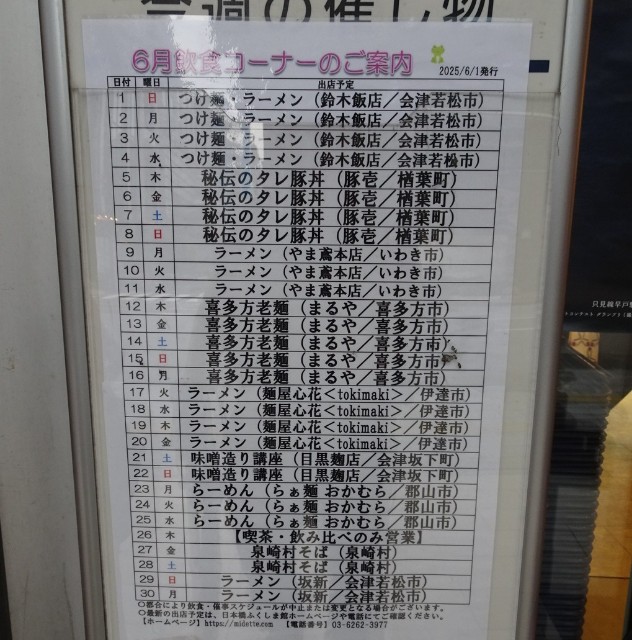 今週の催し物
6月飲食コーナーのご案内
2025/6/1発行
日付 曜日 出店予定
1 日 つけ麺・ラーメン（鈴木飯店／会津若松市）
2 月 つけ麺・ラーメン（鈴木飯店／会津若松市）
3 火 つけ麺・ラーメン（鈴木飯店／会津若松市）
4 水 つけ麺・ラーメン（鈴木飯店／会津若松市）
5 木 秘伝のタレ豚丼（豚壱／楢葉町）
6 金 秘伝のタレ豚丼（豚壱／楢葉町）
7 土 秘伝のタレ豚丼（豚壱／楢葉町）
8 日 秘伝のタレ豚丼（豚壱／楢葉町）
9 月 ラーメン（やま鳶本店／いわき市）
10 火 ラーメン（やま鳶本店／いわき市）
11 水 ラーメン（やま鳶本店／いわき市）
12 木 喜多方老麺（まるや／喜多方市）
13 金 喜多方老麺（まるや／喜多方市）
14 土 喜多方老麺（まるや／喜多方市）
15 日 喜多方老麺（まるや／喜多方市）
16 月 喜多方老麺（まるや／喜多方市）
17 火 ラーメン（麺屋心花＜tokimaki＞／伊達市）
18 水 ラーメン（麺屋心花＜tokimaki＞／伊達市）
19 木 ラーメン（麺屋心花＜tokimaki＞／伊達市）
20 金 ラーメン（麺屋心花＜tokimaki＞／伊達市）
21 土 味噌造り講座（目黒麹店／会津坂下町）
22 日 味噌造り講座（目黒麹店／会津坂下町）
23 月 らーめん（らぁ麺 おかむら／郡山市）
24 火 らーめん（らぁ麺 おかむら／郡山市）
25 水 らーめん（らぁ麺 おかむら／郡山市）
26 木 【喫茶・飲み比べのみ営業】
27 金 泉崎村そば（泉崎村）
28 土 泉崎村そば（泉崎村）
29 日 ラーメン（坂新／会津若松市）
30 月 ラーメン（坂新／会津若松市）
○都合により飲食・催事スケジュールが中止または変更となる場合がございます。
○最新の出店予定は、日本橋ふくしま館ホームページや電話にてご確認ください。
【ホームページ】https://midette.com 【電話番号】03-6262-3977
只見線早戸